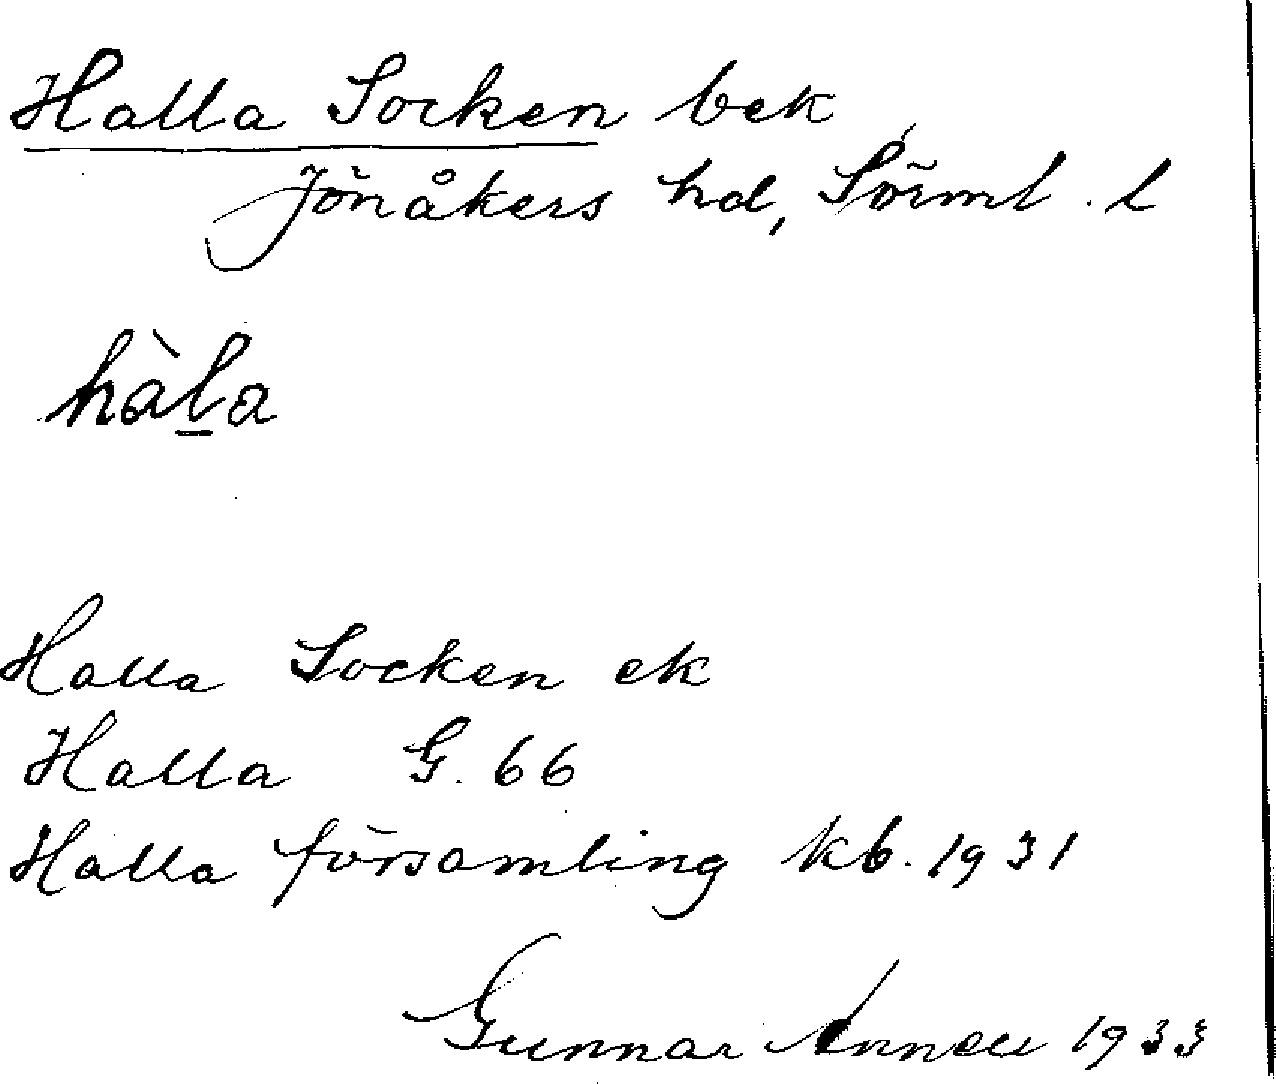 Halla Socken bek
Jönåkers hd, Sörml. l
hàl̲a
Halla Socken ek
Halla G. 66
Halla församling kb. 1931
Gunnar Annell 1933